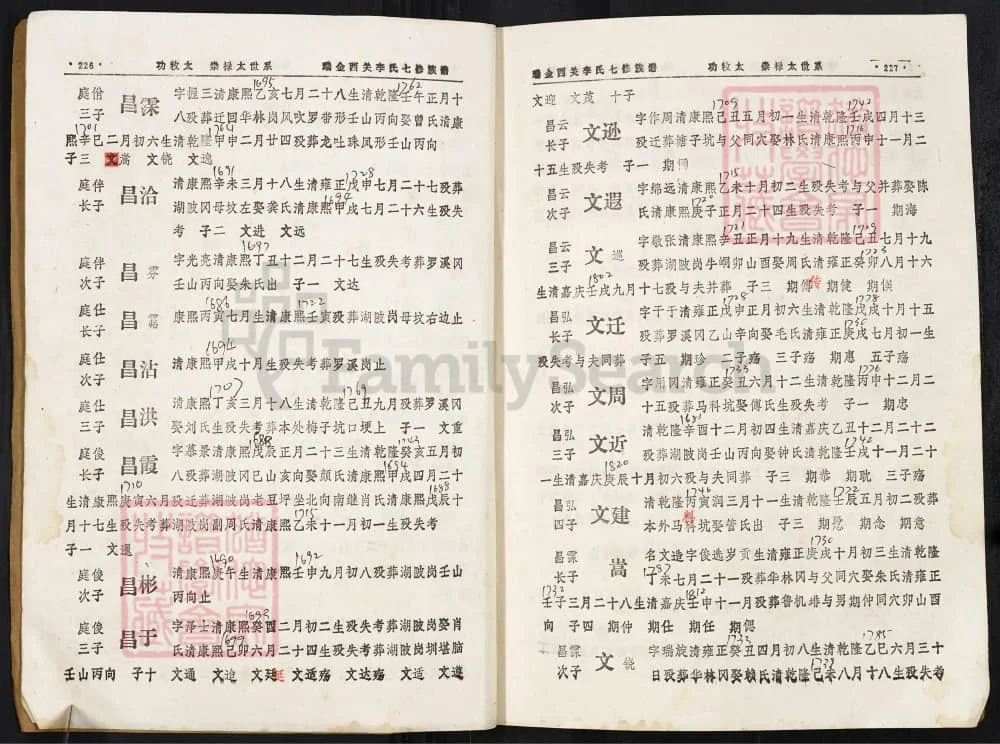 ·226· 功牧太 崇禄太世系 瑞金西关李氏七修族谱
庭佾三子 昌霂 字握三清康熙乙亥七月二十八生清乾隆壬午正月十
八殁葬迁回华林岗风吹罗带形壬山丙向娶曾氏清康
熙辛巳二月初六生清乾隆甲申二月廿四殁葬龙吐珠凤形壬山丙向
子三 文嵩 文铙 文逸
庭伴长子 昌洽 清康熙辛未三月十八生清雍正戊申七月二十七殁葬
湖陂冈母坟左娶龚氏清康熙甲戌七月二十六生殁失
考 子二 文进 文远
庭伴次子 昌雰 字光亮清康熙丁丑十二月二十七生殁失考葬罗溪冈
壬山丙向娶朱氏出 子一 文达
庭仕长子 昌霱 康熙丙寅七月生清康熙壬寅殁葬湖陂岗母坟右边止
庭仕次子 昌沾 清康熙甲戌十月生殁失考葬罗溪岗止
庭仕三子 昌洪 清康熙丁亥三月十八生清乾隆己丑九月殁葬罗溪冈
娶刘氏生殁失考葬本处梅子坑口埂上 子一 文重
庭俊长子 昌霞 字慕景清康熙戊辰正月二十三生清乾隆癸亥五月初
八殁葬湖陂冈巳山亥向娶颜氏清康熙甲戌四月二十
生清康熙庚寅六月殁迁葬湖陂岗老豆坪坐北向南继肖氏清康熙戊辰十
月十七生殁失考葬湖陂岗副周氏清康熙乙未十一月初一生殁失考
子一 文暹
庭俊次子 昌彬 清康熙庚午生清康熙壬申九月初八殁葬湖陂岗壬山
丙向止
庭俊三子 昌于 字泽士清康熙癸酉二月初二生殁失考葬湖陂岗娶肖
氏清康熙己卯六月二十四生殁失考葬湖陂岗圳堪脑
壬山丙向 子十 文通 文迨 文廷 文适殇 文达殇 文适 文遵
1695 1762
1701 1764
1691 1728
1694
1697
1686 1722
1694
1707 1769
1688 1743
1694
1710 1688
1715
1690 1692
1693
1699
瑞金西关李氏七修族谱 功牧太 崇禄太世系 ·227·
文迎 文茂 十子
昌云长子 文逊 字作周清康熙己丑五月初一生清乾隆壬戌四月十三
殁迁葬塘子坑与父同穴娶林氏清康熙丙申十一月二
十五生殁失考 子一 期
昌云次子 文遐 字绵远清康熙乙未十月初二生殁失考与父并葬娶陈
氏清康熙庚子正月二十四生殁失考 子一 期海
昌云三子 文巡 字敬张清康熙辛丑正月十九生清乾隆己丑七月十九
殁葬湖陂岗牛嘲卯山酉娶周氏清雍正癸卯八月十六
生清嘉庆壬戌九月十七殁与夫并葬 子三 期传 期健 期俟
昌弘长子 文迁 字于于清雍正戊申正月初六生清乾隆戊戌十月十五
殁葬罗溪冈乙山辛向娶毛氏清雍正庚戌七月初一生
殁失考与夫同葬 子五 期珍 二子殇 三子殇 期惠 五子殇
昌弘次子 文周 字用冈清雍正癸丑六月十二生清乾隆丙申十二月二
十五殁葬马科坑娶傅氏生殁失考 子一 期忠
昌弘三子 文近 清乾隆辛酉十二月初四生清嘉庆乙丑十二月二十二
殁葬湖陂岗壬山丙向娶钟氏清乾隆壬戌十一月二十
一生清嘉庆庚辰十月初六殁与夫同葬 子三 期恭 期耽 三子殇
昌弘四子 文建 清乾隆丙寅润三月十一生清乾隆壬辰五月初二殁葬
本外马科坑娶管氏出 子三 期愻 期念 期意
昌霂长子 嵩 名文造字俊选岁贡生清雍正庚戌十月初三生清乾隆
丁未七月二十一殁葬华林冈与父同穴娶朱氏清雍正
壬子三月二十八生清嘉庆壬申十一月殁葬鲁机排与男期仲同穴卯山酉
向 子四 期仲 期仕 期任 期偲
昌霂次子 文铙 字瑞旋清雍正癸丑四月初八生清乾隆乙巳六月三十
日殁葬华林冈娶赖氏清乾隆己未八月十八生殁失考
1709 1742
1716
1715
1720
1721 1709
1723
1802
1728 1778
1730
1733 1776
1820 1742
1746 1772
1730
1787
1732 1812
1733 1785
1739
FamilySearch